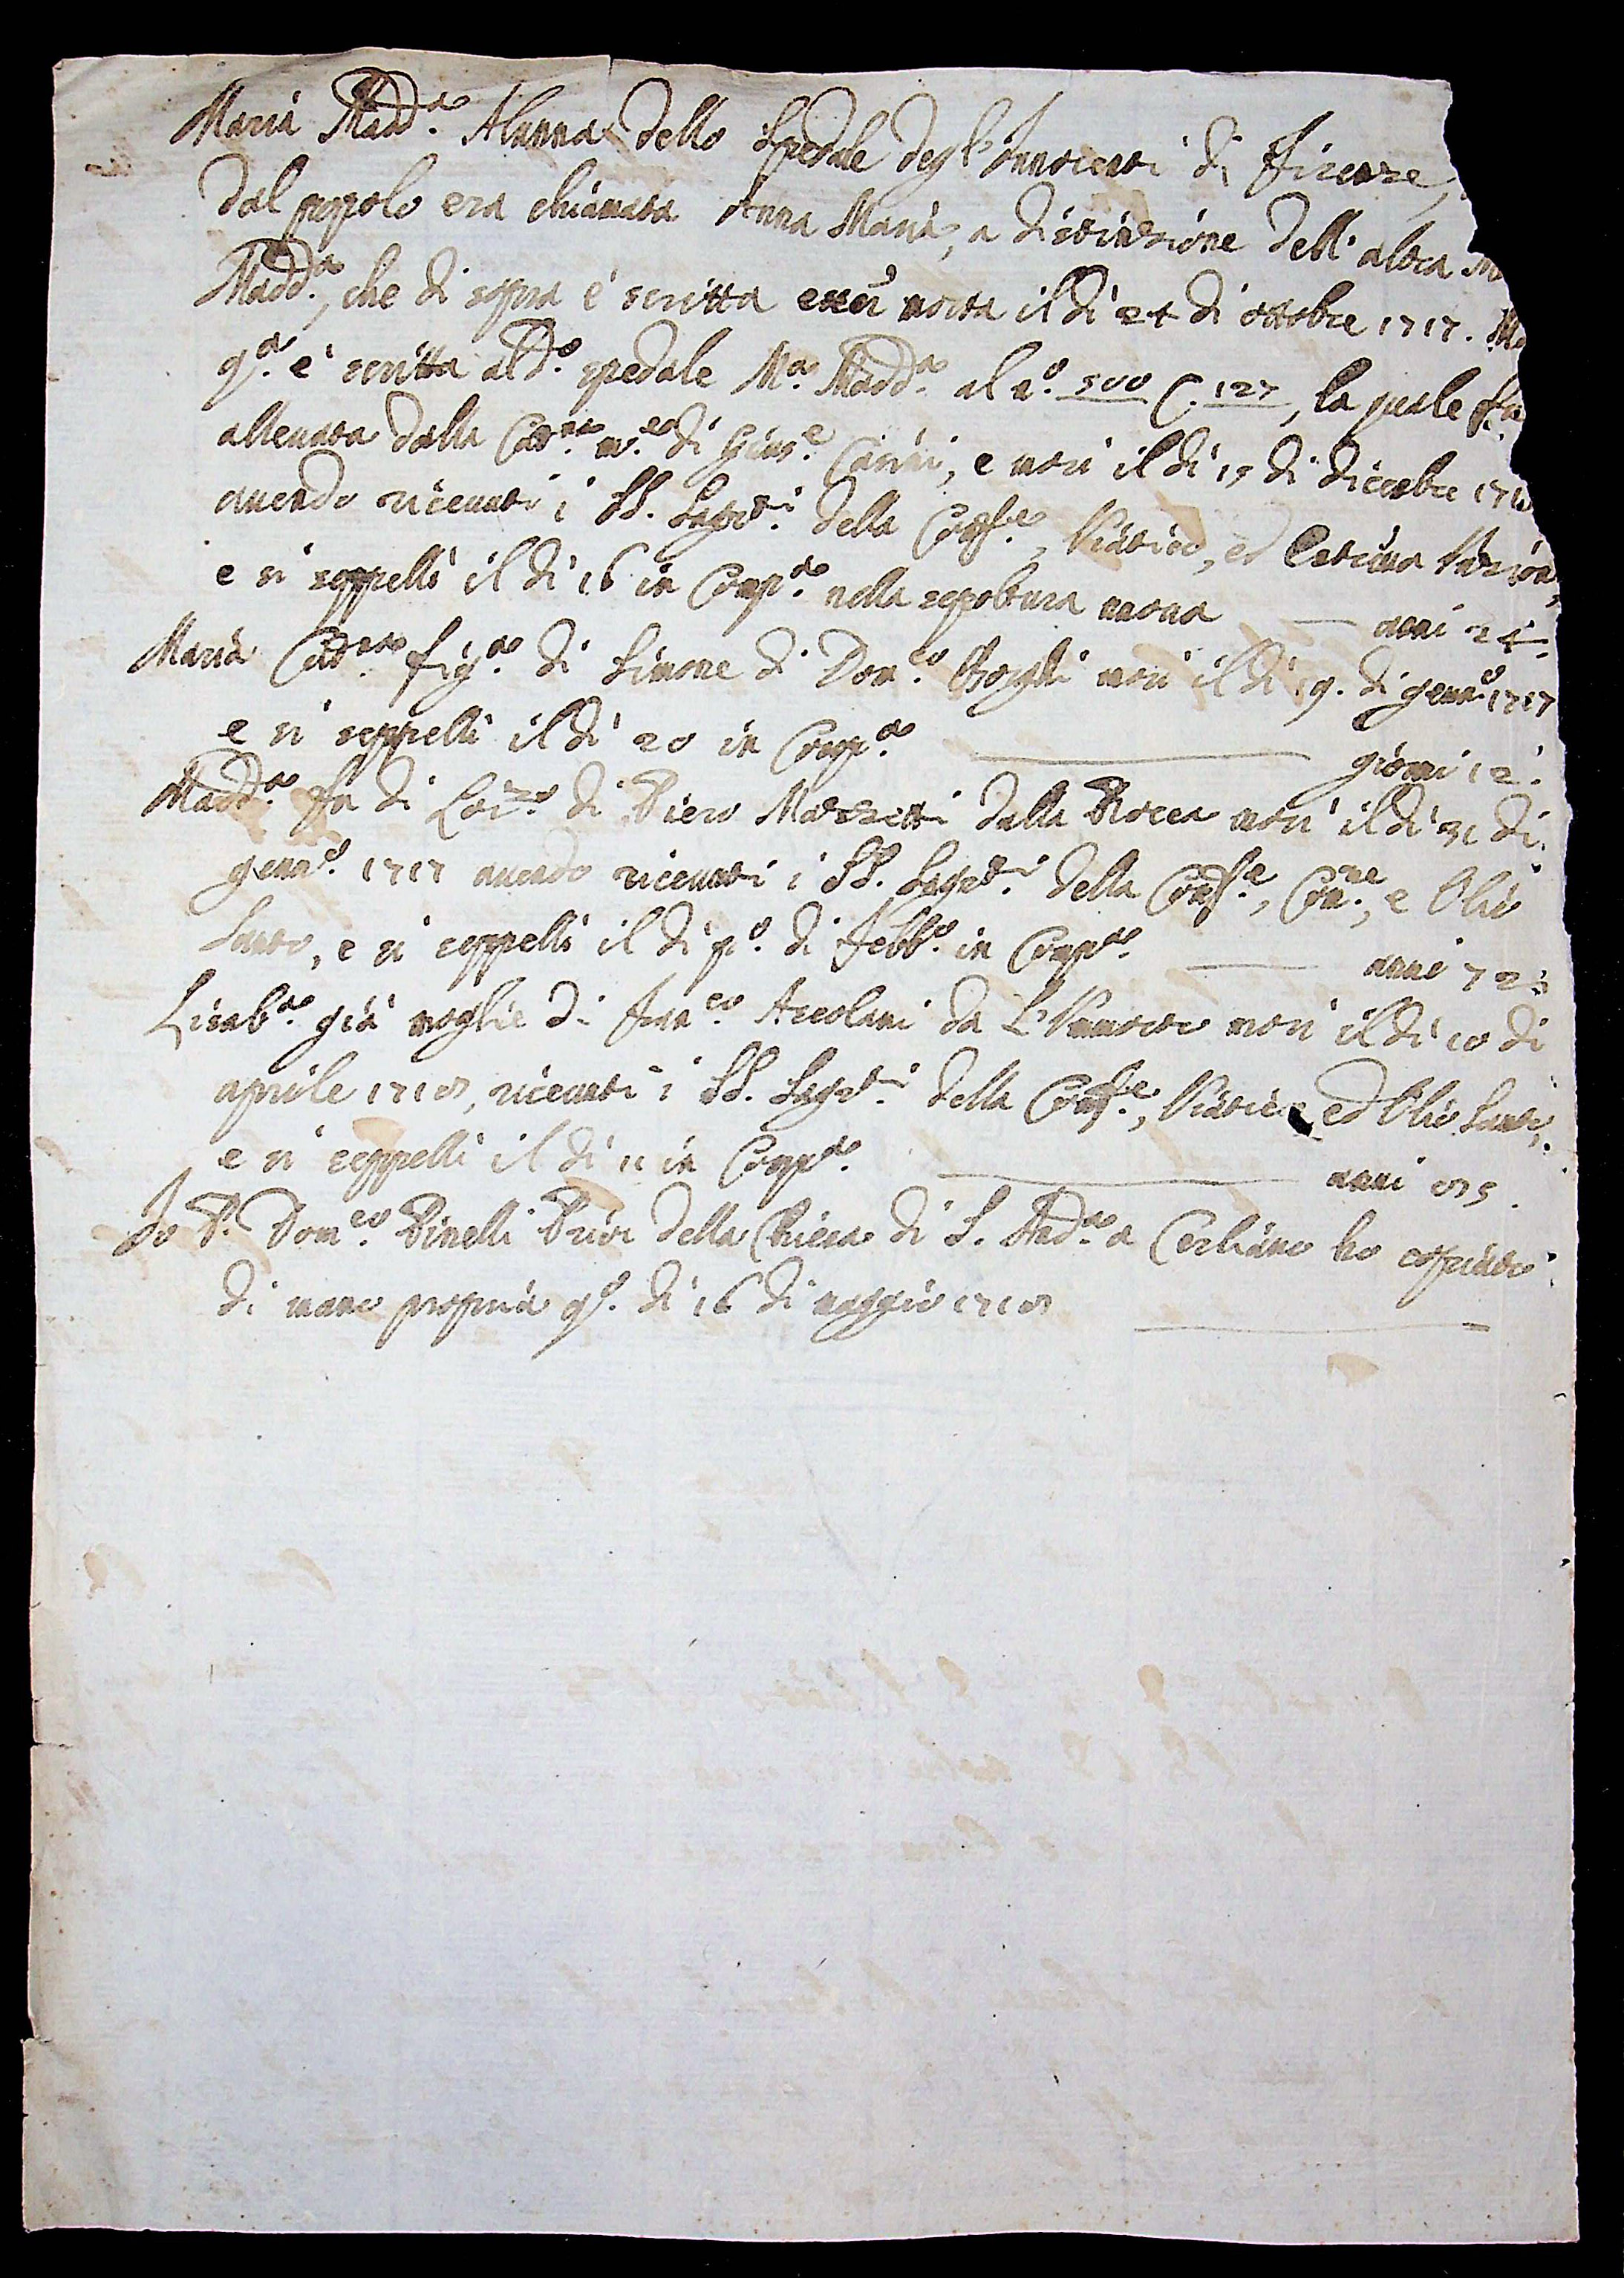 Maria Madd.a Alunna dello Spedale degl'Innocenti di Firenze,
dal popolo era chiamata Anna Maria, a distinzione dell'altra M
Madd.a, che di sopra è scritta esser morta il dì 24 di ottobre 1717. Ma
q.a è scritta al d.o spedale M.a Madd.a al n.o 500 C. 127, la quale fu
allevata dalla Cat.na m.e di Gius.e Casini, e morì il dì 15 di dicembre 171
avendo ricevuti i SS. Sagr.ti della Conf.e, Viatico, ed Estrema Unzione,
e si seppellì il dì 16 in Comp.a nella sepoltura nuova anni 24.
Maria Cat.na fig.a di Simone di Dom.co Borghi morì il dì 19. di genn.o 1717
e si seppellì il dì 20 in Comp.a giorni 12.
Madd.a fu di Lor.zo di Piero Mazzetti dalla Rocca morì il dì 31 di
genn.o 1717 avendo ricevuti i SS. Sagr.ti della Conf.e, Com.ne, e Olio
Santo, e si seppellì il dì p.o di Febb.o in Comp.a anni 72.
Lisab.a già moglie di Fran.co Arcolani da L' morì il dì 10 di
aprile 1718, ricevuti i SS. Sagr.ti della Conf.e, Viatico ed Olio Santo,
e si seppellì il dì 11 in Comp.a anni 85.
Io P. Dom.co Pinelli Priore della Chiesa di S. And.a a Cerliano ho copiato
di mano propria q.o dì 16 di maggio 1718